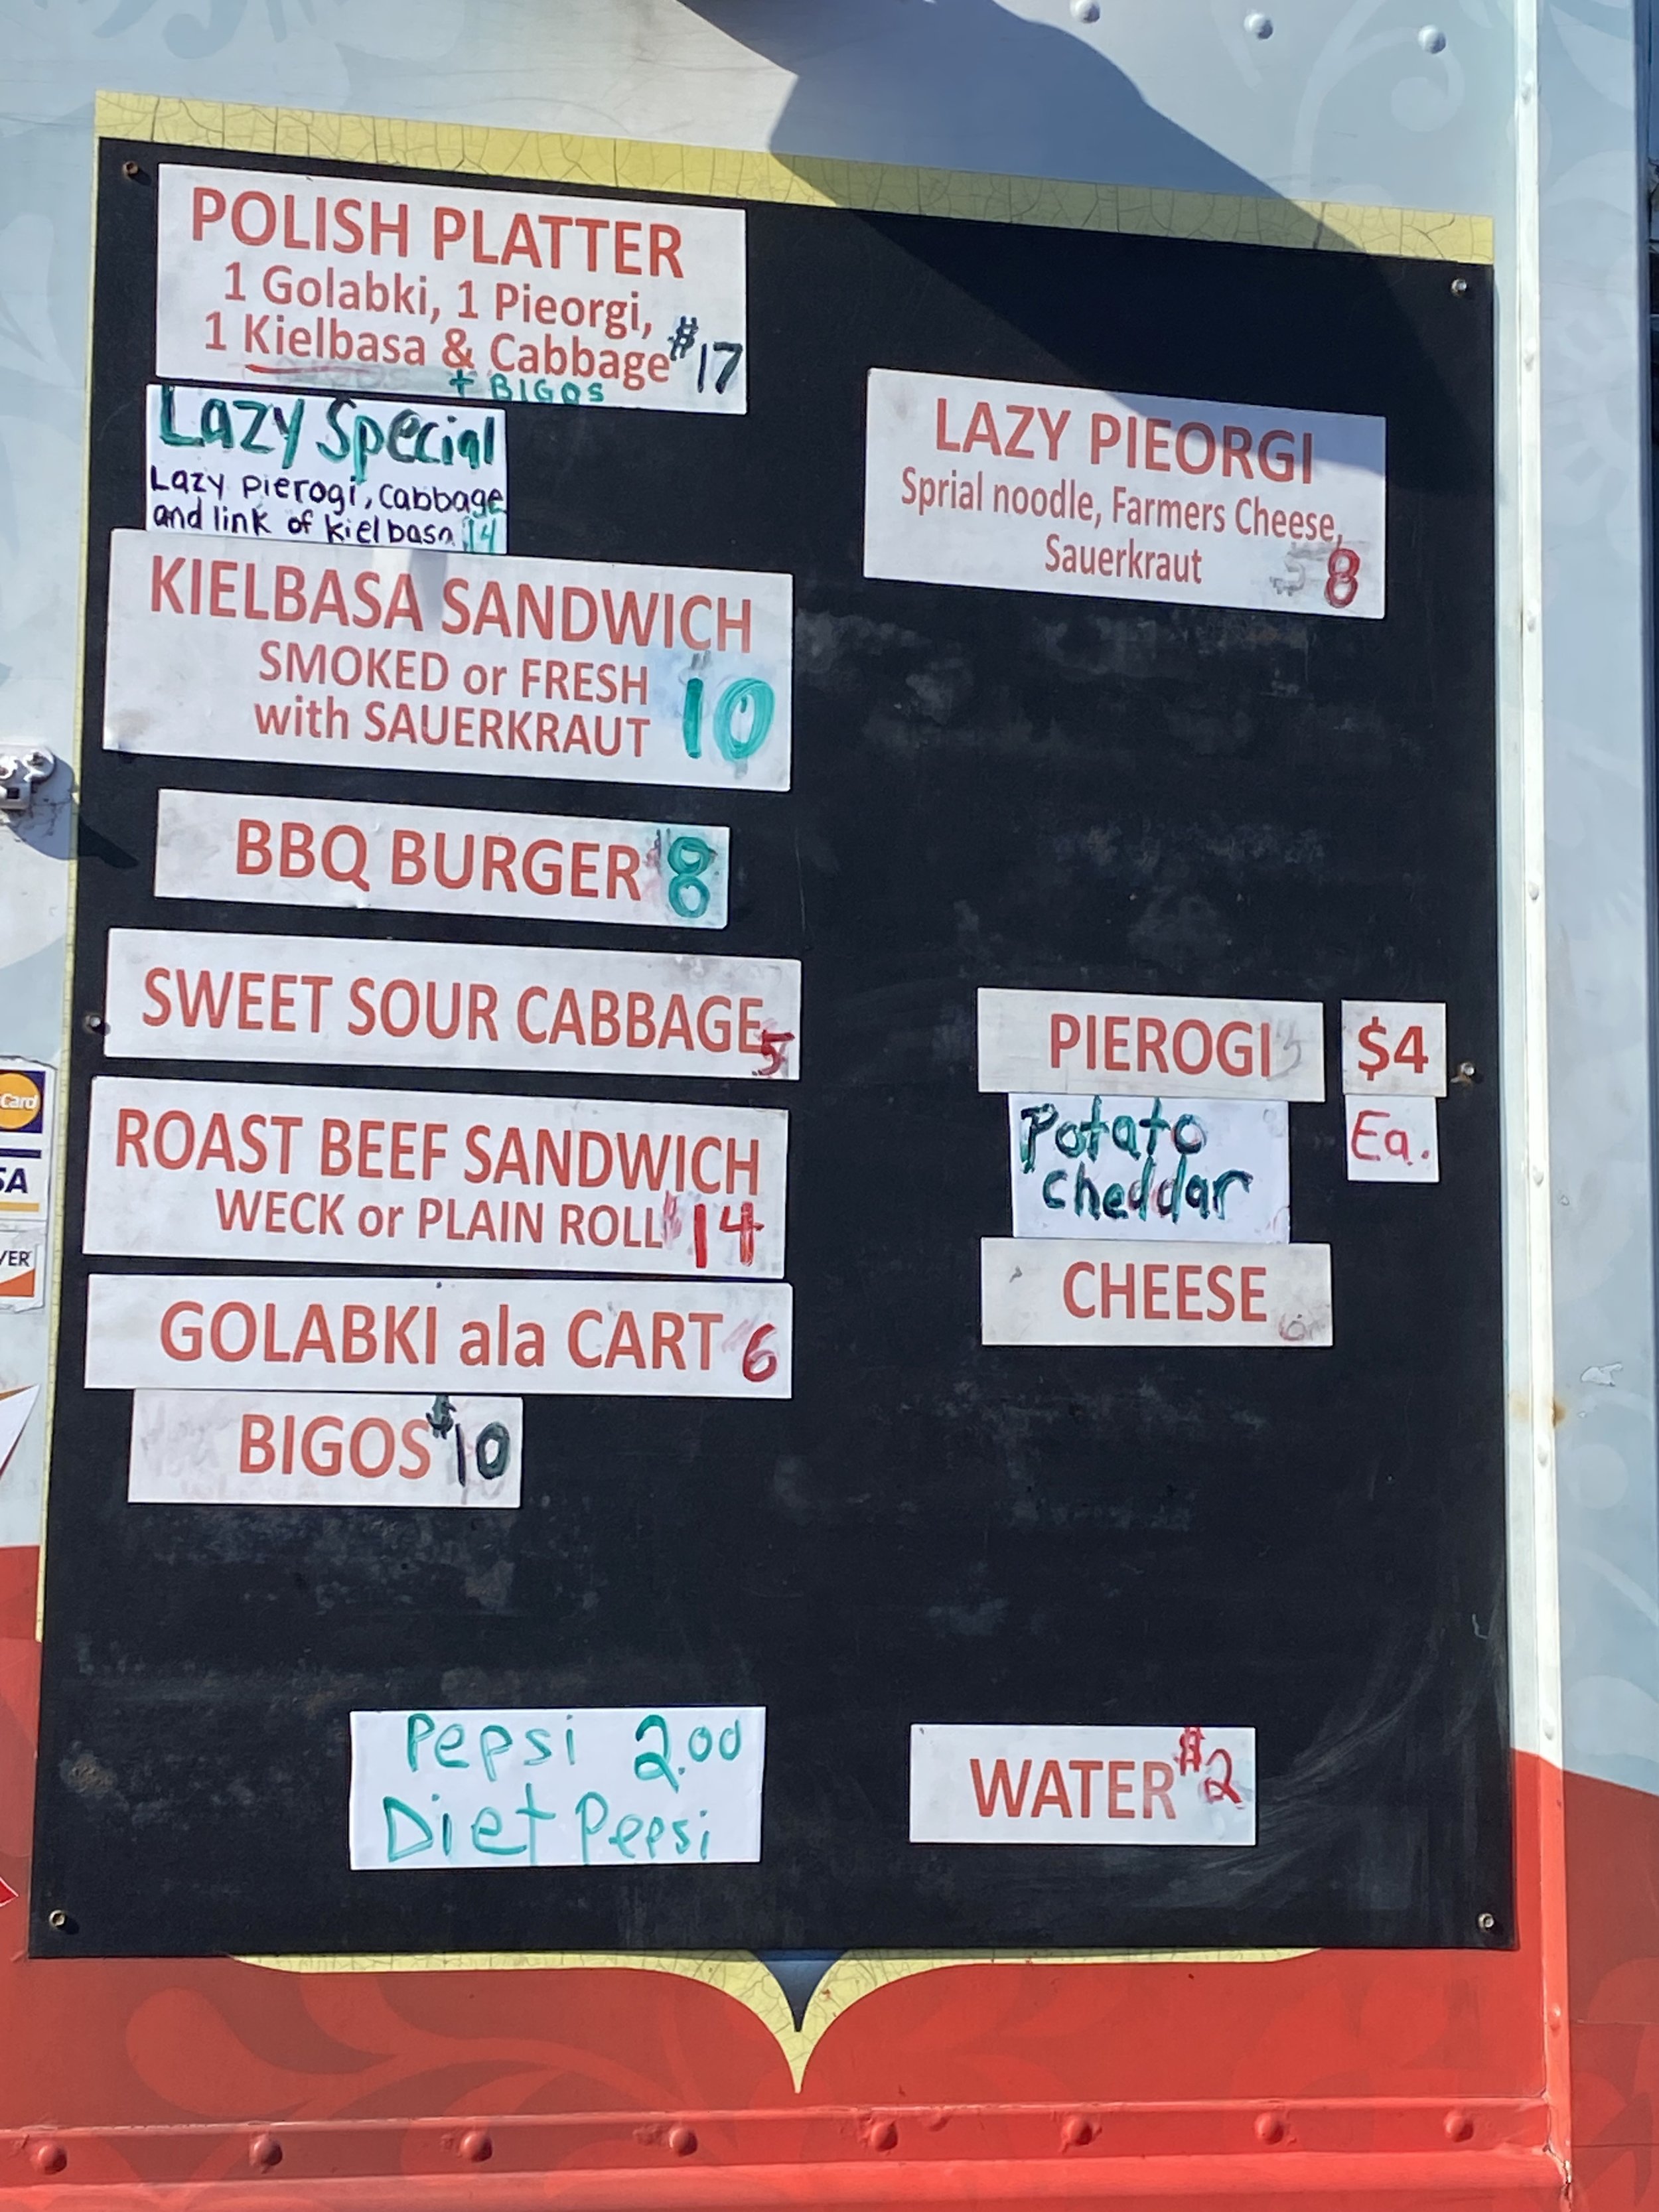 POLISH PLATTER
1 Golabki, 1 Pieorgi,
1 Kielbasa & Cabbage $17
+ BIGOS
Lazy Special
Lazy pierogi, cabbage
and link of kielbasa 14
KIELBASA SANDWICH
SMOKED or FRESH
with SAUERKRAUT 10
BBQ BURGER $8
SWEET SOUR CABBAGE 5
ROAST BEEF SANDWICH
WECK or PLAIN ROLL $14
GOLABKI ala CART 6
BIGOS $10
LAZY PIEORGI
Sprial noodle, Farmers Cheese,
Sauerkraut $8
PIEROGI $4
Potato Ea.
cheddar
CHEESE
Pepsi 2.00
Diet Pepsi
WATER $2
Card
SA
VER